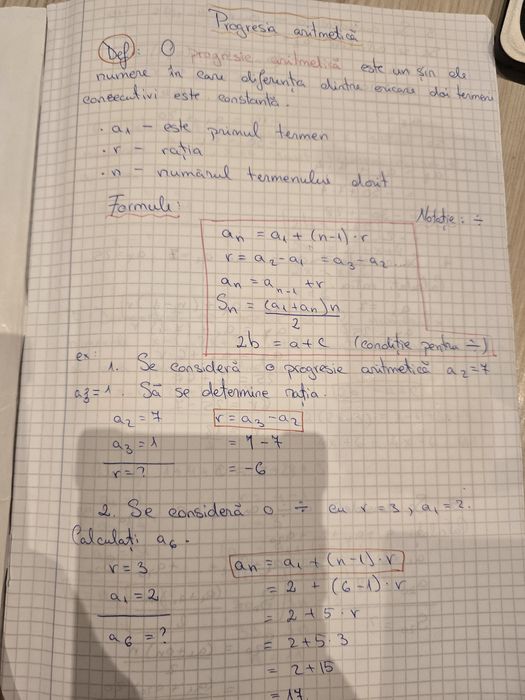 Progresia aritmetică
Def: O progresie aritmetică este un șir de
numere în care diferența dintre oricare doi termeni
consecutivi este constantă.
. a₁ – este primul termen
. r – rația
. n – numărul termenului dorit
Formule: Notație: ÷
aₙ = a₁ + (n-1)·r
r = a₂-a₁ = a₃-a₂
aₙ = aₙ₋₁ + r
Sₙ = (a₁+aₙ)n / 2
2b = a+c (condiție pentru ÷)
ex:
1. Se consideră o progresie aritmetică a₂=7
a₃=1. Să se determine rația.
a₂ = 7 r = a₃-a₂
a₃ = 1 = 1-7
r = ? = -6
2. Se consideră o ÷ cu r=3, a₁=2.
Calculați a₆.
r = 3 aₙ = a₁ + (n-1)·r
a₁ = 2 = 2 + (6-1)·r
a₆ = ? = 2+5·r
= 2+5·3
= 2+15
= 17